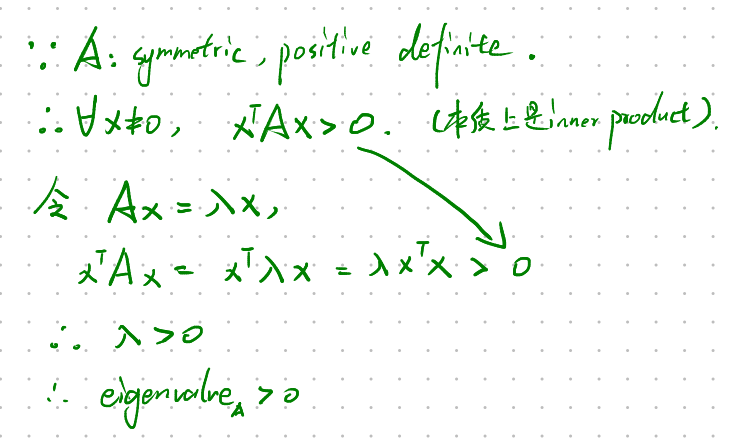 ∵ A: symmetric, positive definite.
∴ ∀x≠0, xᵀAx > 0. (本质上是inner product).
令 Ax = λx,
xᵀAx = xᵀλx = λxᵀx > 0
∴ λ > 0
∴ eigenvalue_A > 0